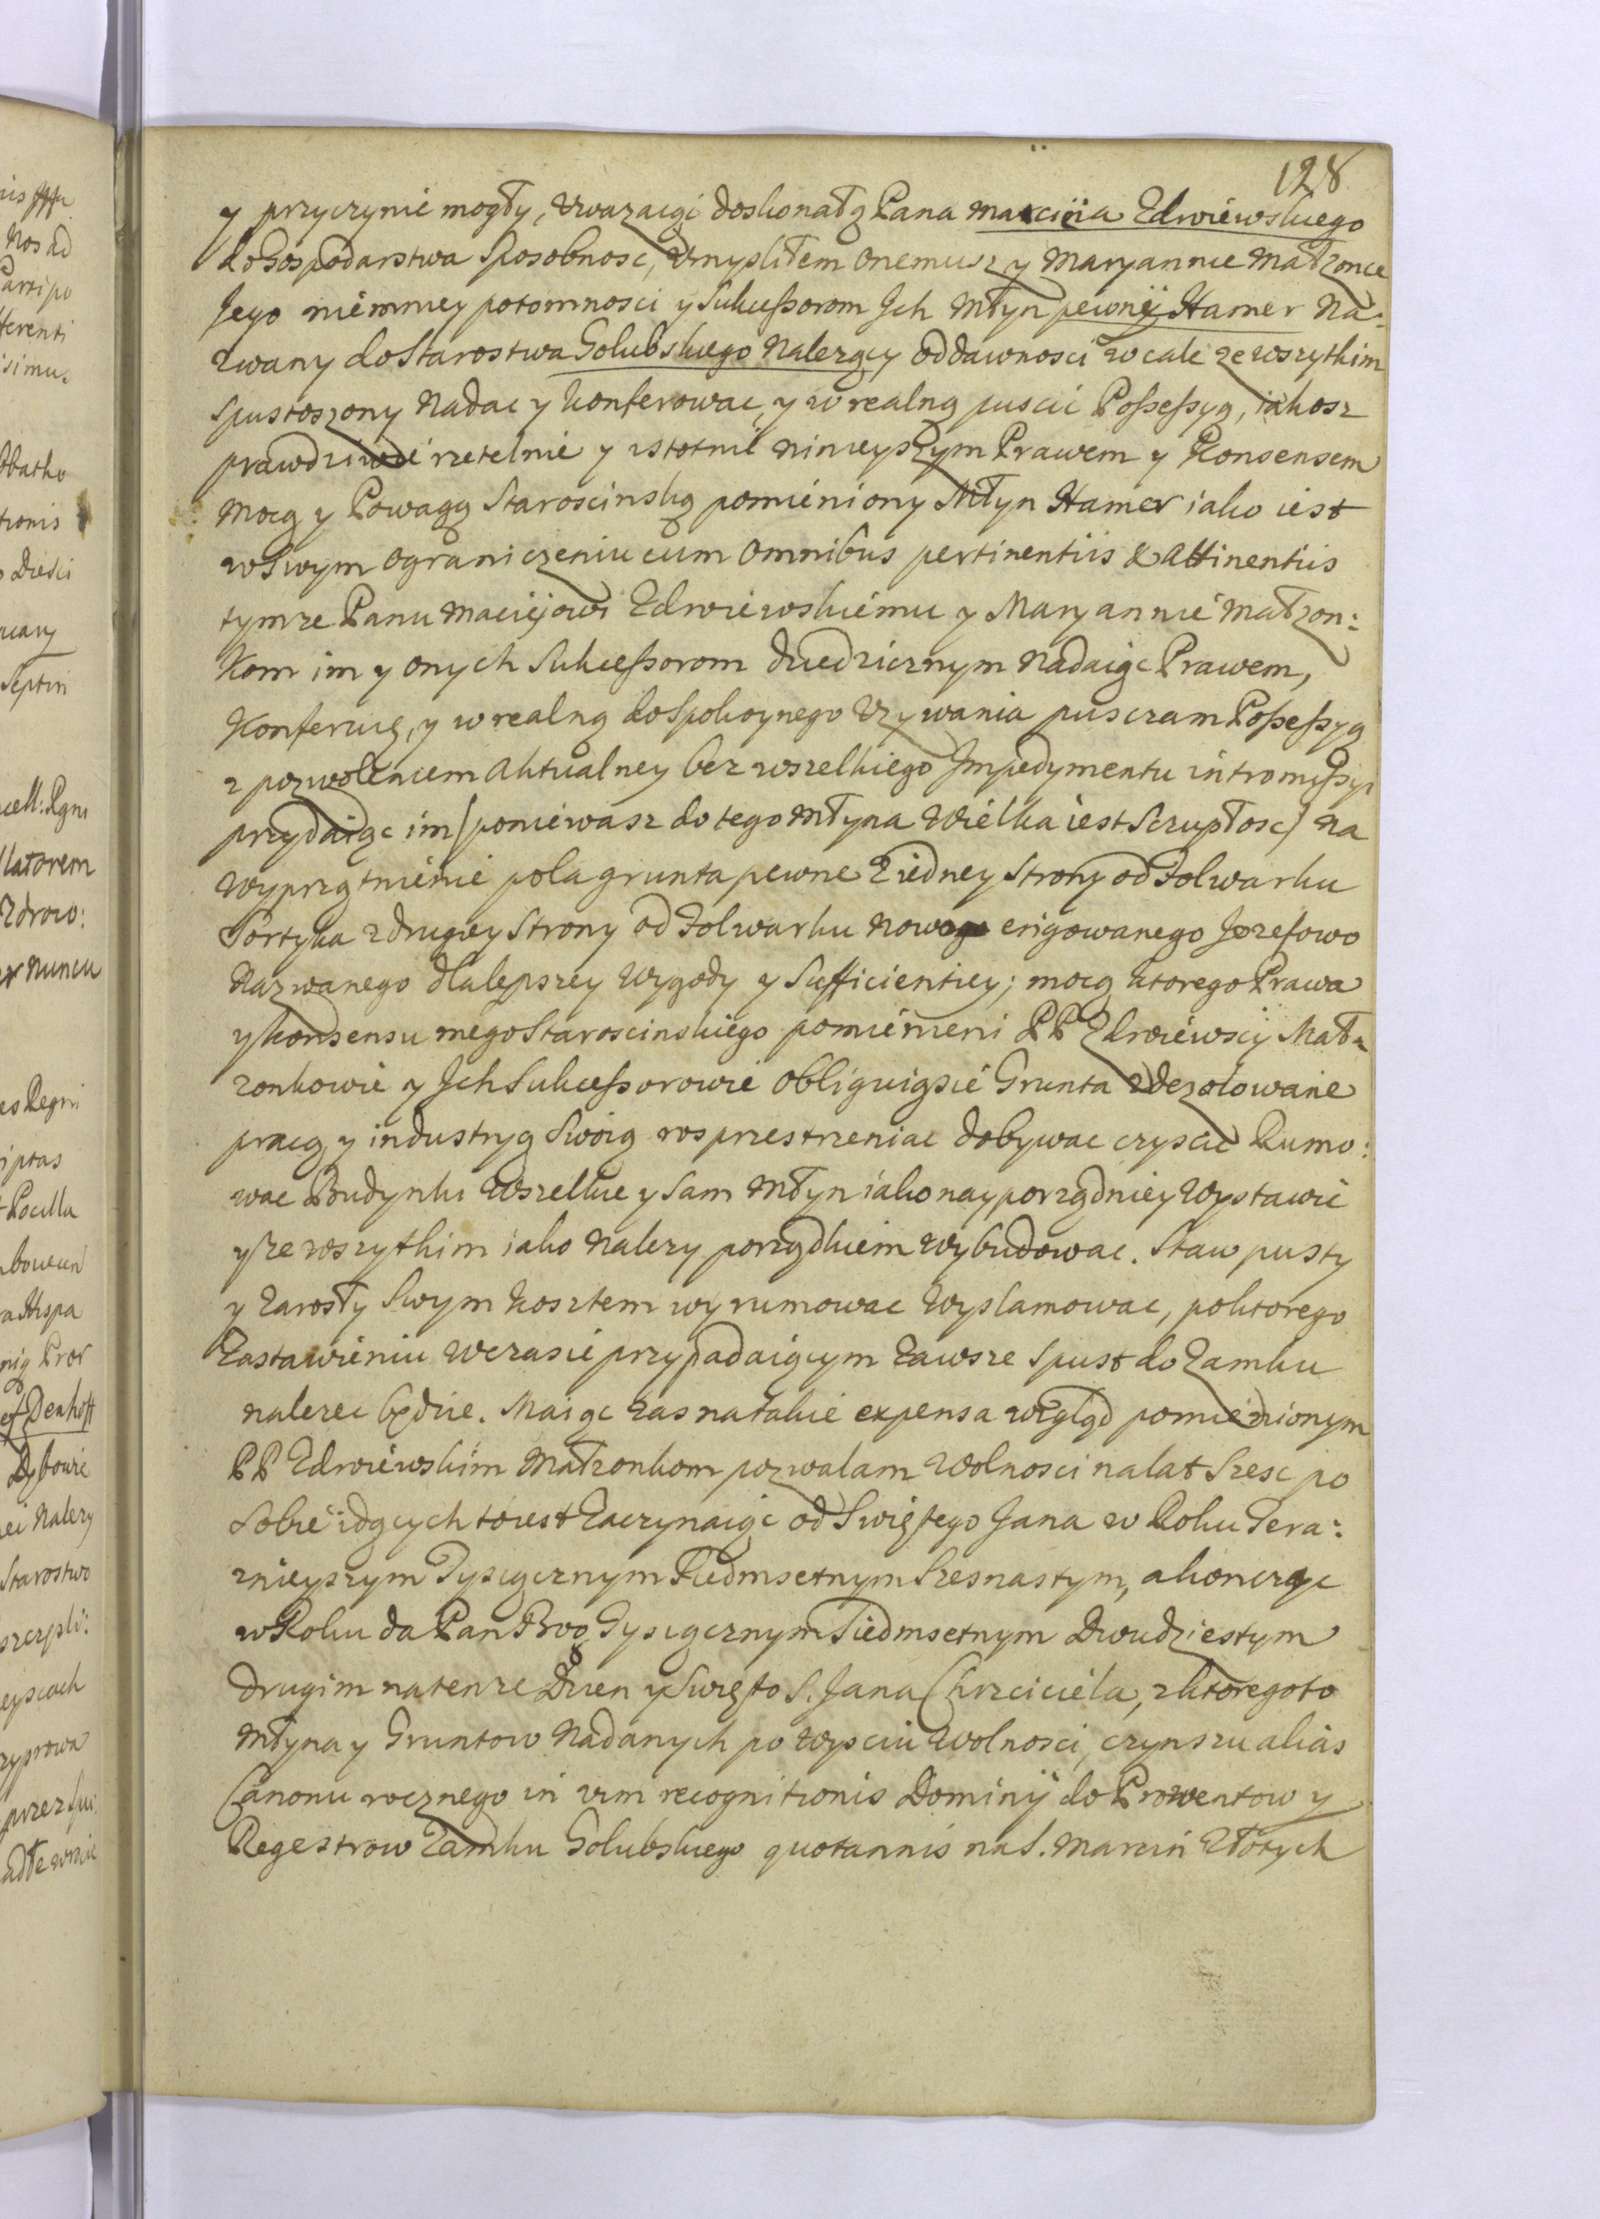 128
y przyczynic mogły, Uwazaiąc doskonałą Pana Macieia Zdwiewskiego
do Gospodarstwa Sposobnosc, Umysliłem onemusz y Maryannie Małzonce
Jego niemniey potomnosci y Sukcessorom Jch Młyn pewnÿ Hamer Na:
zwany do Starostwa Golubskiego Nalezący od dawnosci wcale ze wszytkim
Spustoszony Nadac y konferowac, y w realną puscic Possessyą, iakosz
prawdziwie rzetelnie y istotnie ninieyszym Prawem y Konsensem
Mocą y Powagą Staroscinską pomieniony Młyn Hamer iako iest
w Swym Ograniczeniu cum Omnibus pertinentiis & Attinentiis
tymze Panu Maciejowi Zdwiewskiemu y Maryannie Małzon:
kom im y onych Sukcessorom dziedzicznym Nadaiąc Prawem,
Konferuię, y w realną do Spokoynego Uzywania pusczam Possessyą
z pozwoleniem Aktualney bez wszelkiego Jmpedymentu intromissyi
przydaiąc im /poniewasz do tego Młyna Wielka iest Szczupłosc/ Na
Wyprzątnienie pola grunta pewne Z iedney Strony od Folwarku
Sortyka z drugiey Strony od Folwarku Nowo erigowanego Jozefowo
Nazwanego dla lepszey Wygody y Sufficientiey; mocą ktorego Prawa
y konsensu mego Staroscinskiego pomienieni PP Zdwiewscÿ Mał=
zonkowie y Jch Sukcessorowie Obliguiąsie Grunta zdezolowane
pracą y industryą Swoią rosprzestrzeniac dobywac czyscic Rumo:
wac Budynki Wszelkie y Sam Młyn iako nayporządniey Wystawic
y ze wszytkim iako Nalezy porządkiem Wybudowac. Staw pusty
y Zarosły Swym Kosztem wyrumowac Wyslamowac, po ktorego
Zastawieniu W czasie przypadaiącym Zawsze Spust do Zamku
nalezec będzie. Maiąc zas na takie expensa Wzgląd pomienionym
PP Zdwiewskim Małzonkom pozwalam Wolnosci na lat Szesc po
Sobie idących to iest Zaczynaiąc od Swiętego Jana w Roku Tera:
znieyszym Tysiącznym Siedmsetnym Szesnastym, a koncząc
w Roku da Pan Bog Tysiącznym Siedmsetnym Dwudziestym
drugim na tenze Dzien y Swięto S. Jana Chrzciciela, z ktorego to
Młyna y Gruntow Nadanych po Wysciu Wolnosci, czynszu alias
Canonu rocznego in vim recognitionis Dominÿ do Prowentow y
Regestrow Zamku Golubskiego quotannis na S. Marcin Złotych